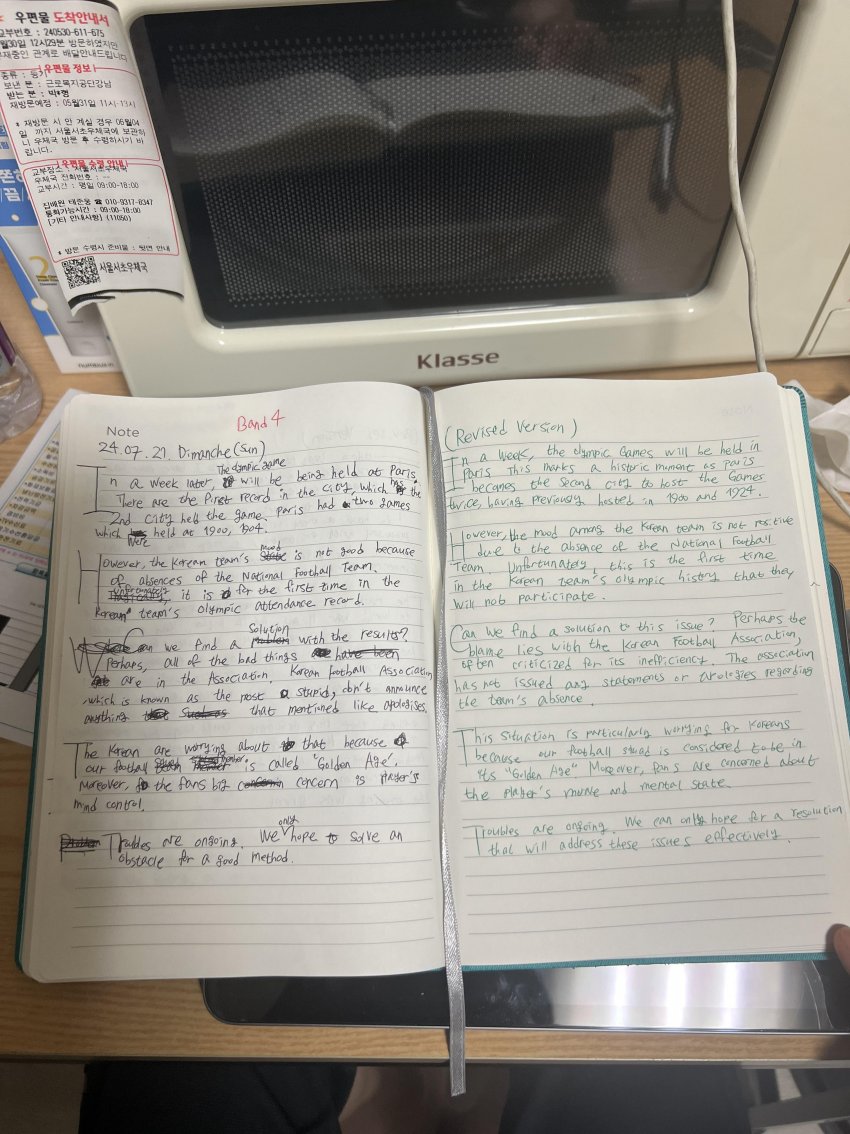 우편물 도착안내서
교부번호 : 240530-611-675
월30일 12시29분 방문하였지만
부재중인 관계로 배달안내드립니다
우편물 정보
종류 : 등기
보낸 분 : 근로복지공단강남
받는 분 : 박*형
재방문예정 : 05월31일 11시-13시
* 재방문 시 안 계실 경우 06월04
일 까지 서울서초우체국에 보관하
니 우체국 방문 후 수령하시기 바
랍니다.
우편물 수령 안내
교부장소 : 서울서초우체국
우체국 전화번호 : --
교부시간 : 평일 09:00-18:00
집배원 태준웅 ☎ 010-9317-8347
통화가능시간 : 09:00-18:00
[기타 안내사항] (11050)
* 방문 수령시 준비물 : 뒷면 안내
서울서초우체국
Klasse
Note
Band 4
24.07.21. Dimanche (Sun)
In a week later, The olympic game will be being held at Paris.
There are the first record in the city, which has the
2nd city held the game. Paris had two games
which were held at 1900, 1904.
However, the Korean team's mood is not good because
of absences of the National Football Team.
Unfortunately, it is for the first time in the
Korean team's olympic attendance record.
Can we find a solution with the results?
Perhaps, all of the bad things
are in the Association, Korean Football Association
which is known as the most stupid, don't announce
anything that mentioned like apologises.
The Korean are worrying about that because
our football squad member is called "Golden Age".
Moreover, the fans big concern is player's
mind control.
Troubles are ongoing. We only hope to solve an
obstacle for a good method.
(Revised Version)
In a week, the olympic Games will be held in
Paris This marks a historic moment as Paris
becomes the second city to host the Games
twice, having previously hosted in 1900 and 1924.
However, the mood among the Korean team is not positive
due to the absence of the National Football
Team Unfortunately, this is the first time
in the Korean team's olympic histry that they
will not participate.
Can we find a solution to this issue? Perhaps the
blame lies with the Korean Football Association,
often criticized for its inefficiency. The association
has not issued any statements or apologies regarding
the team's absence.
This situation is particularly worrying for Koreans
because our football squad is considered to be in
its "Golden Age". Moreover, fans are concerned about
the player's morale and mental state.
Troubles are ongoing. We can only hope for a resolution
that will address these issues effectively.